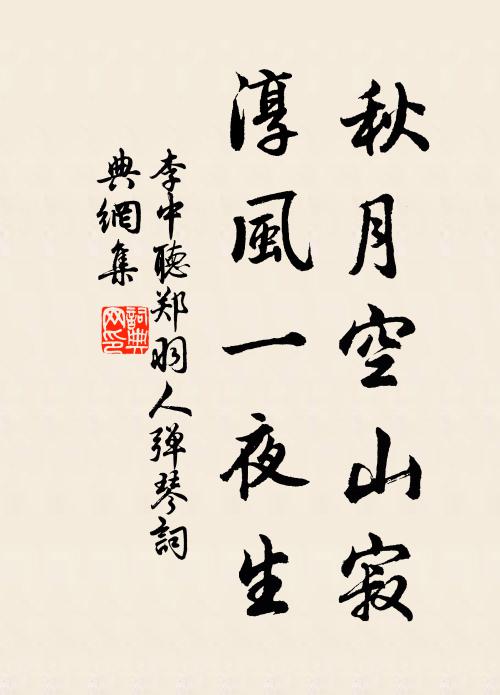 秋月空山寂
淳風一夜生
李中聽郑羽人弹琴詞
典網集
詞典
网印